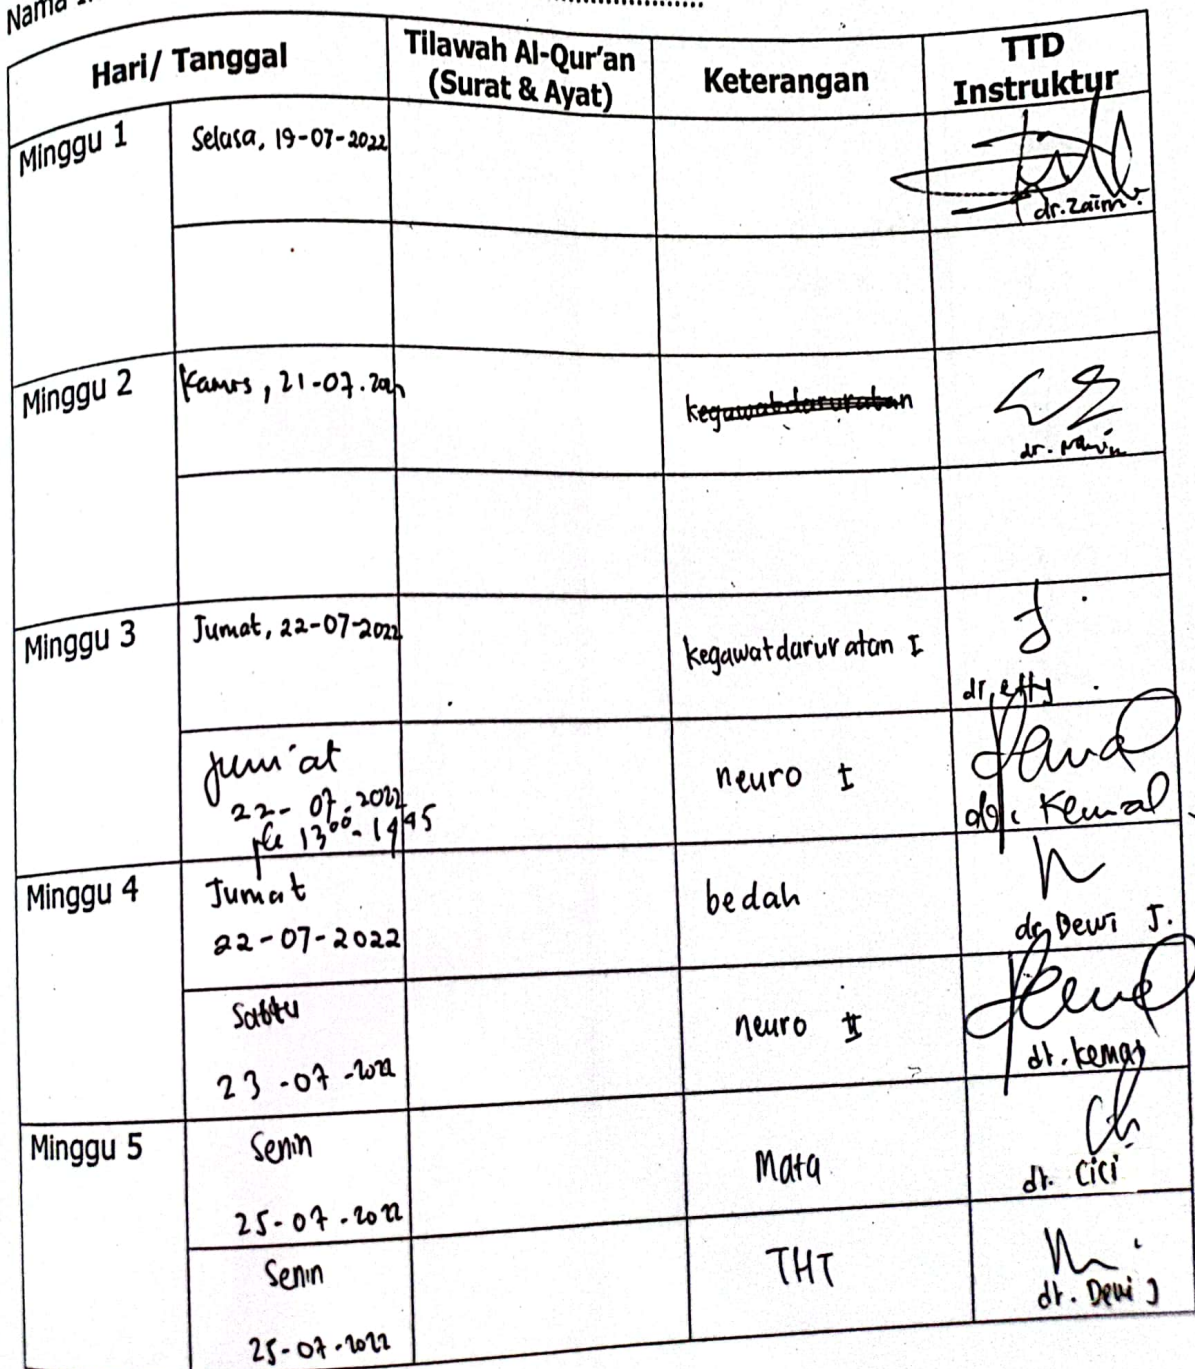 Nama
Hari/ Tanggal
Tilawah Al-Qur'an
(Surat & Ayat)
Keterangan
TTD
Instruktur
Minggu 1
Selasa, 19-07-2022
dr. Zaim
Minggu 2
Kamis, 21-07-2022
kegawatdaruratan
dr.
Minggu 3
Jumat, 22-07-2022
kegawatdaruratan I
dr. effy
jum'at
22-07-2022
13⁰⁰-14⁴⁵
neuro I
dr. Kemal
Minggu 4
Jumat
22-07-2022
bedah
dr Dewi J.
Sabtu
23-07-2022
neuro II
dr. kemas
Minggu 5
Senin
25-07-2022
Mata
dr. Cici
Senin
25-07-2022
THT
dr. Dewi J